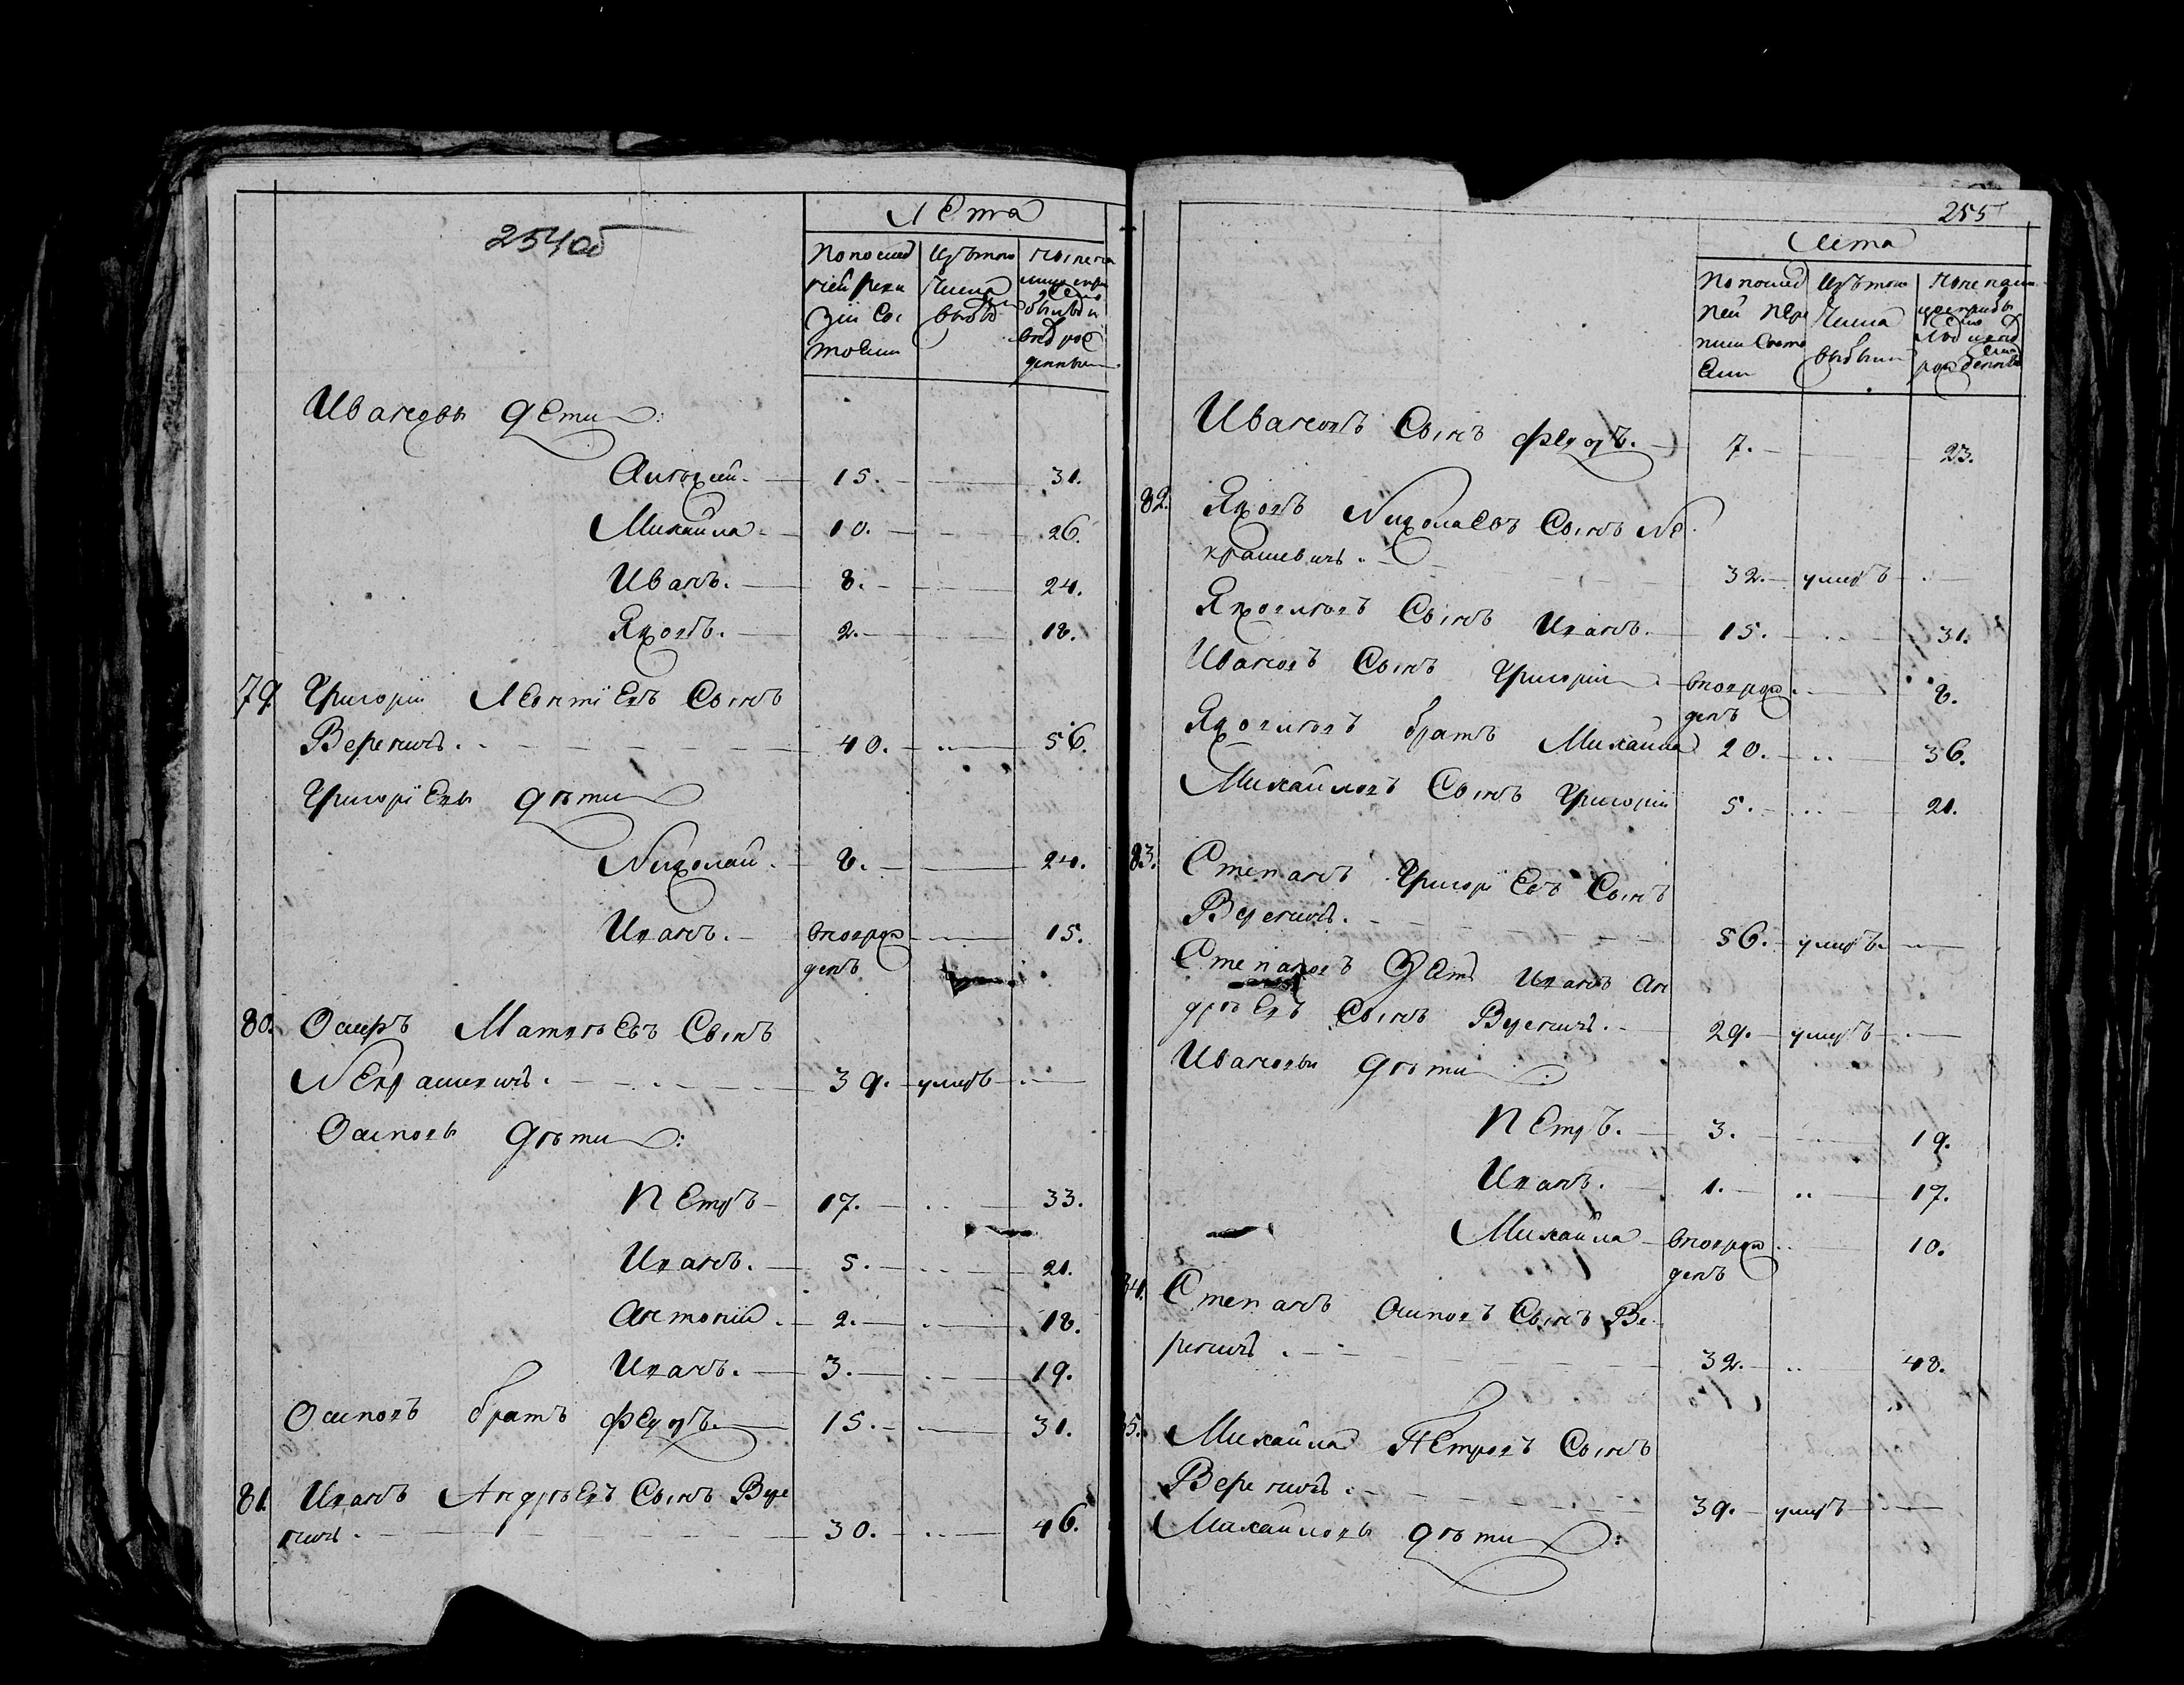 254об
Лета
По послед
ней реви
зіи Сос
тояли
Изъ того
Числа
выбы
ныне на
лицо
вновь рож
денных
Ивановы дети:
Андрей. 15. 31.
Михайла 10. 26.
Иванъ. 8. 24.
Яковъ. 2. 18.
79. Григорій Леонтіевъ Сынъ
Вереничъ. 40. 56.
Григоріевы дѣти
Николай. 8. 24.
Иванъ. вноврож 15.
денъ
80. Осипъ Матвѣевъ Сынъ
Некрашевичъ. 39. умеръ
Осиповы дѣти:
Петръ 17. 33.
Иванъ. 5. 21.
Антоній. 2. 18.
Иванъ. 3. 19.
Осиповъ братъ Федоръ. 15. 31.
81. Иванъ Андрѣевъ Сынъ Вере
ничъ. 30. 46.
255
Лета
По послед
ней пере
писи Состо
яли
Изъ того
Числа
выбыли
Ныне на
рожденных
Ивановъ Сынъ Федоръ. 7. 23.
82. Яковъ Николаевъ Сынъ Не
крашевичъ. 32. умеръ
Яковлевъ Сынъ Иванъ. 15. 31.
Ивановъ Сынъ Григорій вноврож 8.
денъ
Яковлевъ братъ Михайла 20. 36.
Михайловъ Сынъ Григорій 5. 21.
83. Степанъ Григоріевъ Сынъ
Вереничъ. 56. умеръ
Степановъ Зять Иванъ Ан
дрѣевъ Сынъ Вереничъ. 29. умеръ
Ивановы дѣти:
Петръ. 3. 19.
Иванъ. 1. 17.
Михайла вноврож 10.
денъ
84. Степанъ Осиповъ Сынъ Ве
реничъ. 32. 48.
85. Михайла Петровъ Сынъ
Вереничъ. 39. умеръ
Михайловы дѣти: